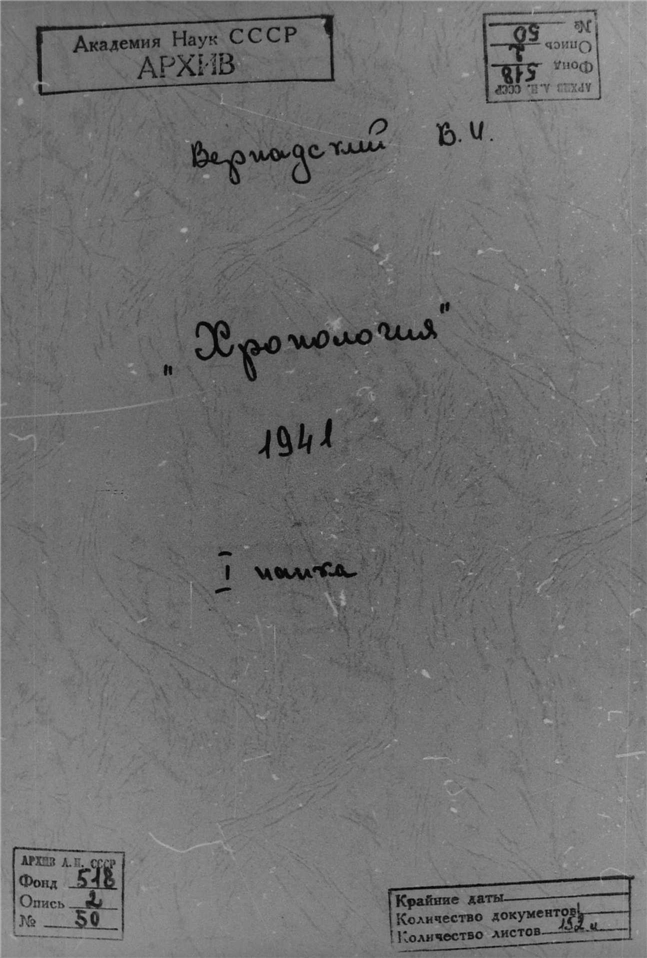 Академия Наук СССР
АРХИВ
АРХИВ А.Н. СССР
Фонд 518
Опись 2
№ 50
Вернадский В.И.
"Хронология"
1941
I папка
АРХИВ А.Н. СССР
Фонд 518
Опись 2
№ 50
Крайние даты
Количество документов
Количество листов 152 л